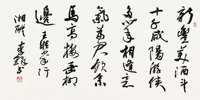 新豐美酒斗
十千咸陽游俠
多少年相逢意
氣為君飲系
馬高樓垂柳
邊 王維少年行